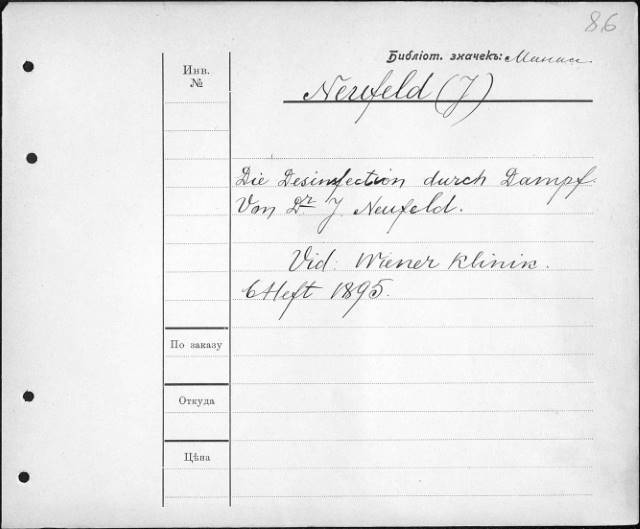 86
Библіот. значекъ:
Инв.
№
Neufeld (J)
Die Desinfection durch Dampf.
Von Dr J. Neufeld.
Vid: Wiener Klinik.
6 Heft 1895.
По заказу
Откуда
Цѣна